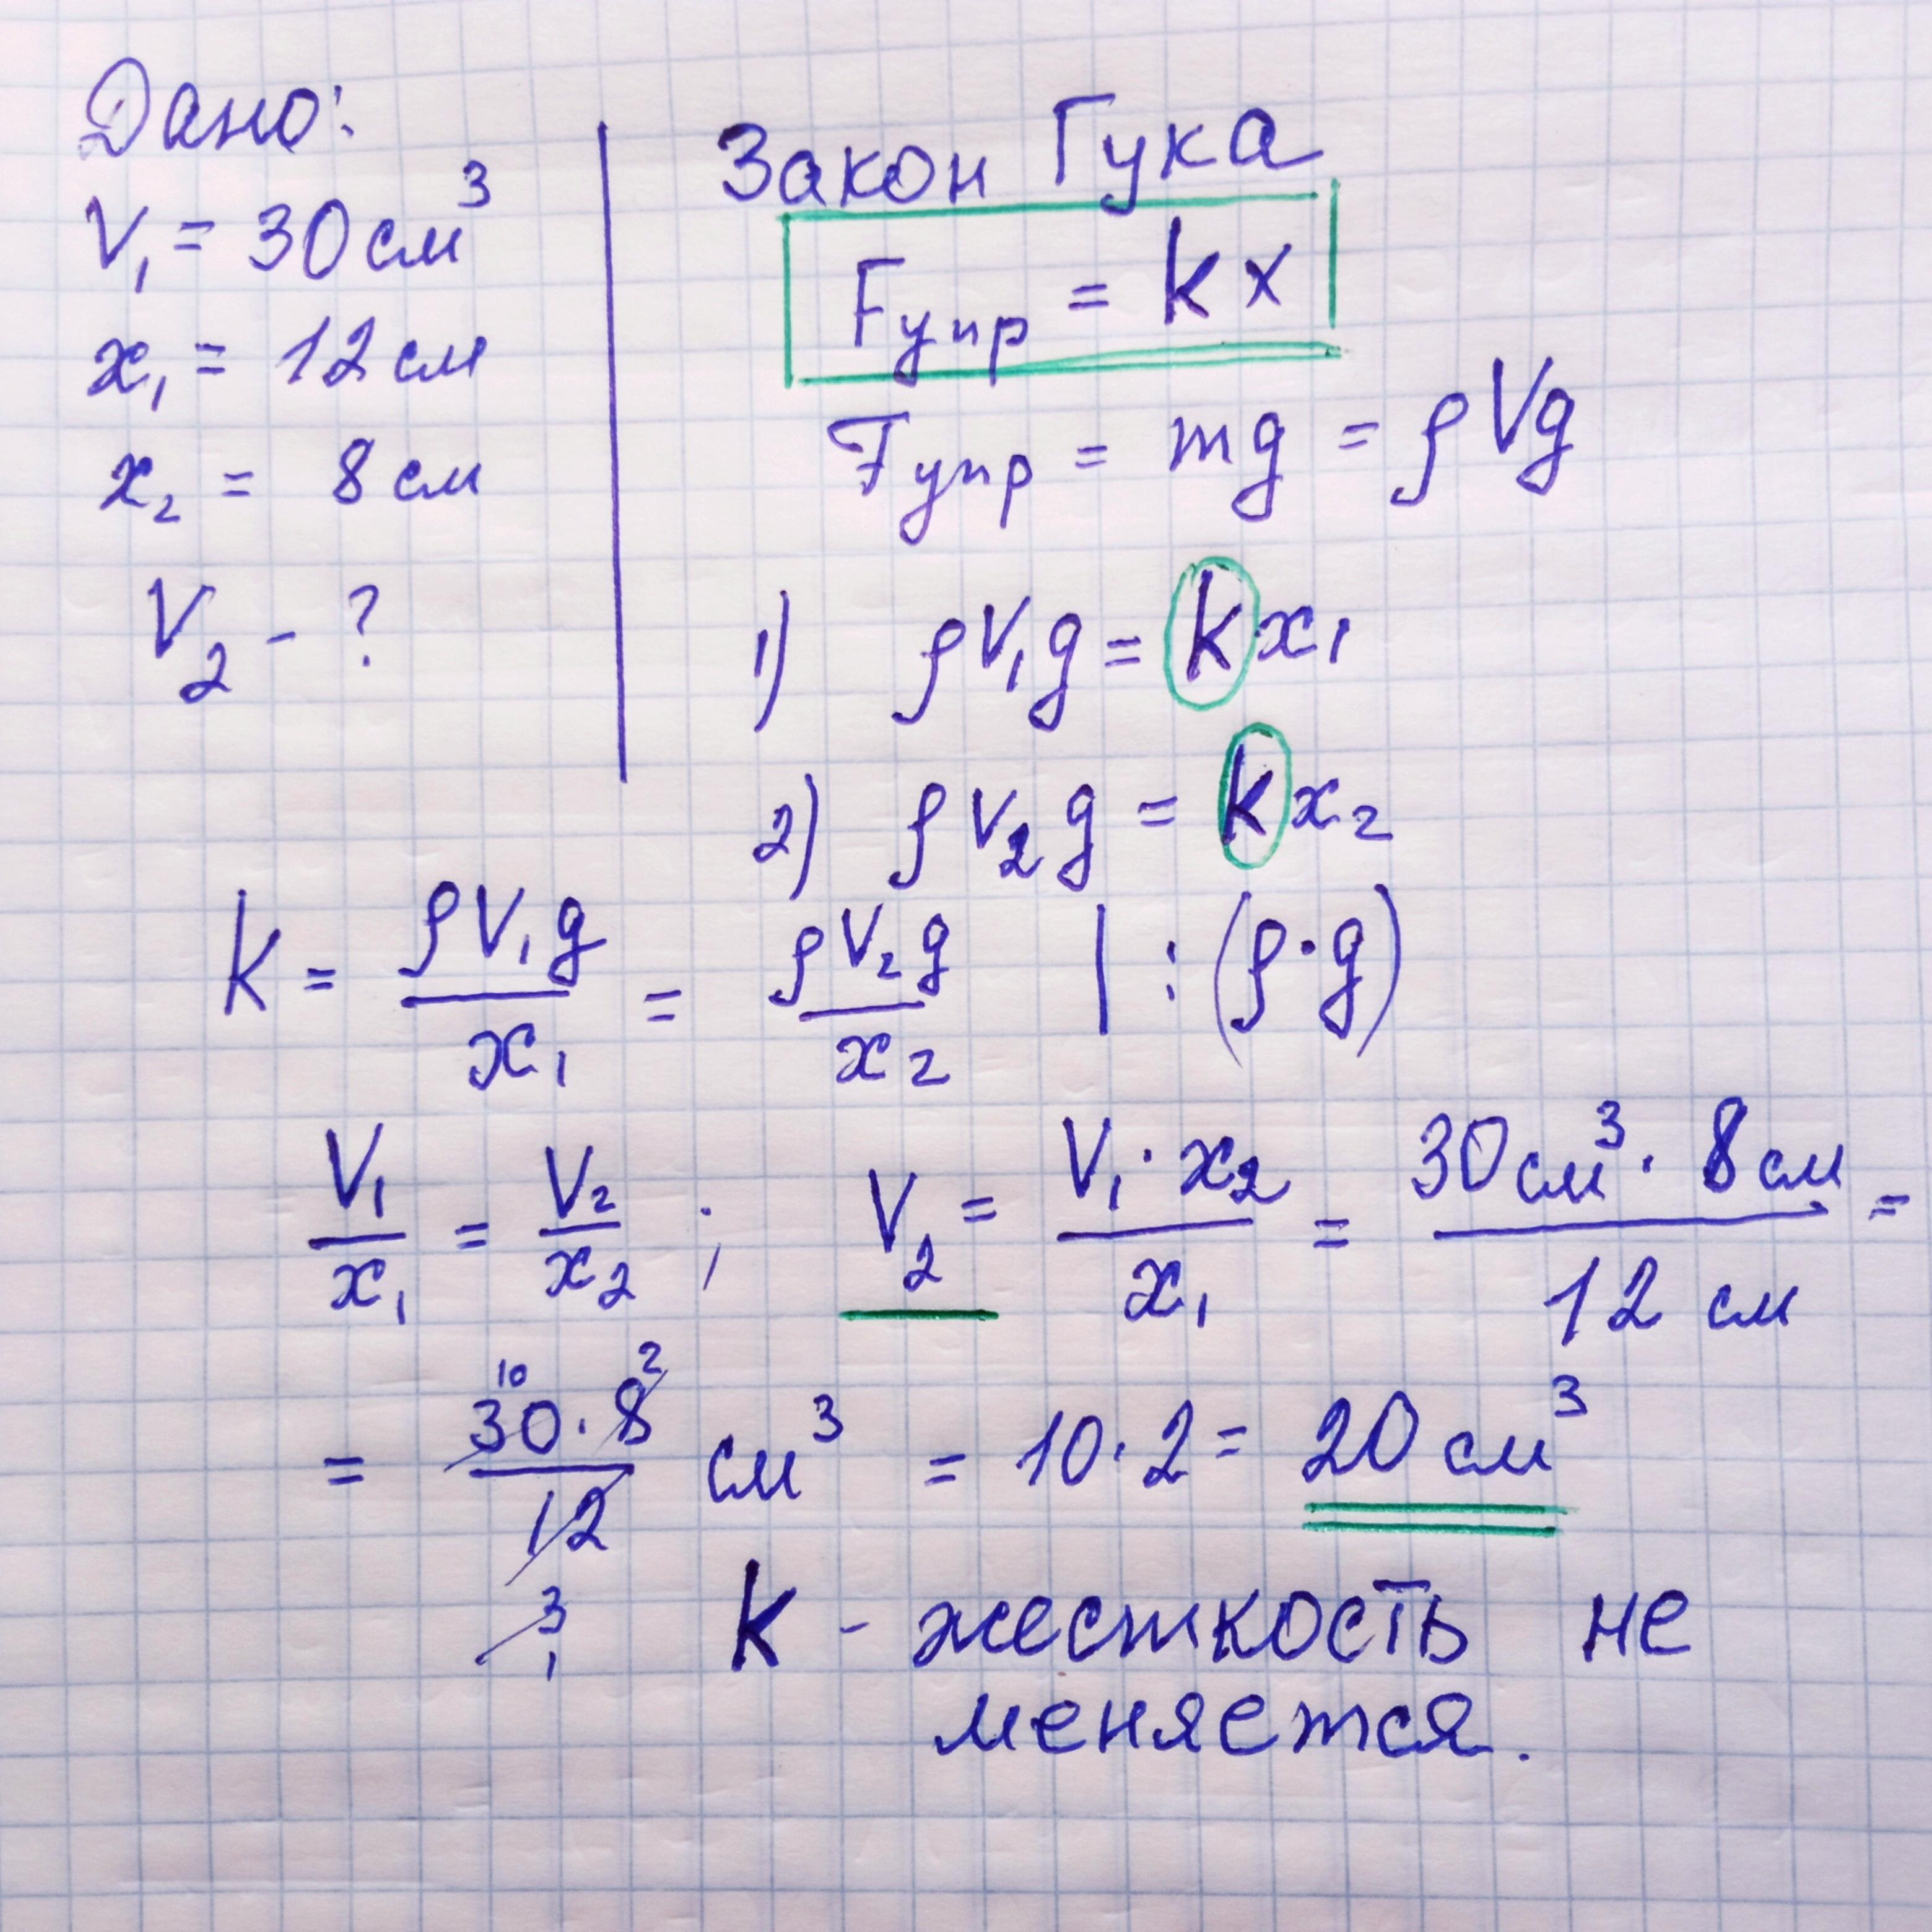 Дано:
V₁ = 30 см³
x₁ = 12 см
x₂ = 8 см
V₂ - ?
Закон Гука
Fупр = kx
Fупр = mg = ρVg
1) ρV₁g = kx₁
2) ρV₂g = kx₂
k = ρV₁g / x₁ = ρV₂g / x₂ | : (ρ·g)
V₁ / x₁ = V₂ / x₂ ; V₂ = V₁·x₂ / x₁ = 30см³·8см / 12 см =
= 30·8 / 12 см³ = 10·2 = 20 см³
10 2
3
1
k - жесткость не
меняется.